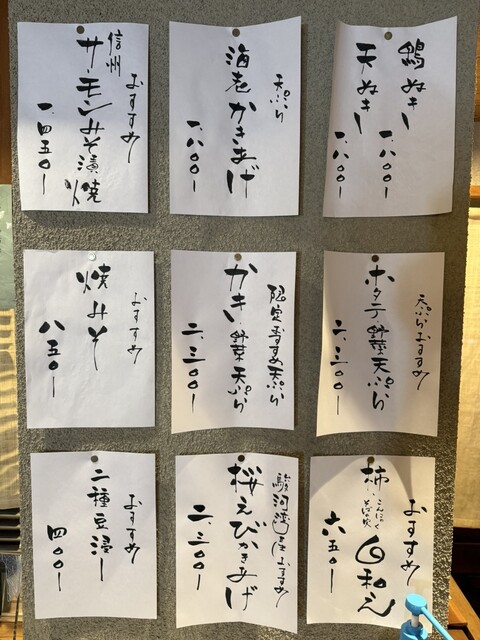 鴨ぬき
一、八〇〇ー
天ぬき
一、八〇〇ー
天ぷら
海老かきあげ
一、八〇〇ー
おすすめ
信州
サーモンみそ漬焼
一、四五〇ー
天ぷらおすすめ
ホタテ・野菜天ぷら
二、三〇〇ー
限定おすすめ天ぷら
かき・野菜天ぷら
二、三〇〇ー
おすすめ
焼みそ
八五〇ー
おすすめ
柿・こんにゃく・そばの実
白和え
六五〇ー
駿河湾産おすすめ
桜えびかきあげ
二、三〇〇ー
おすすめ
二種豆浸し
四〇〇ー